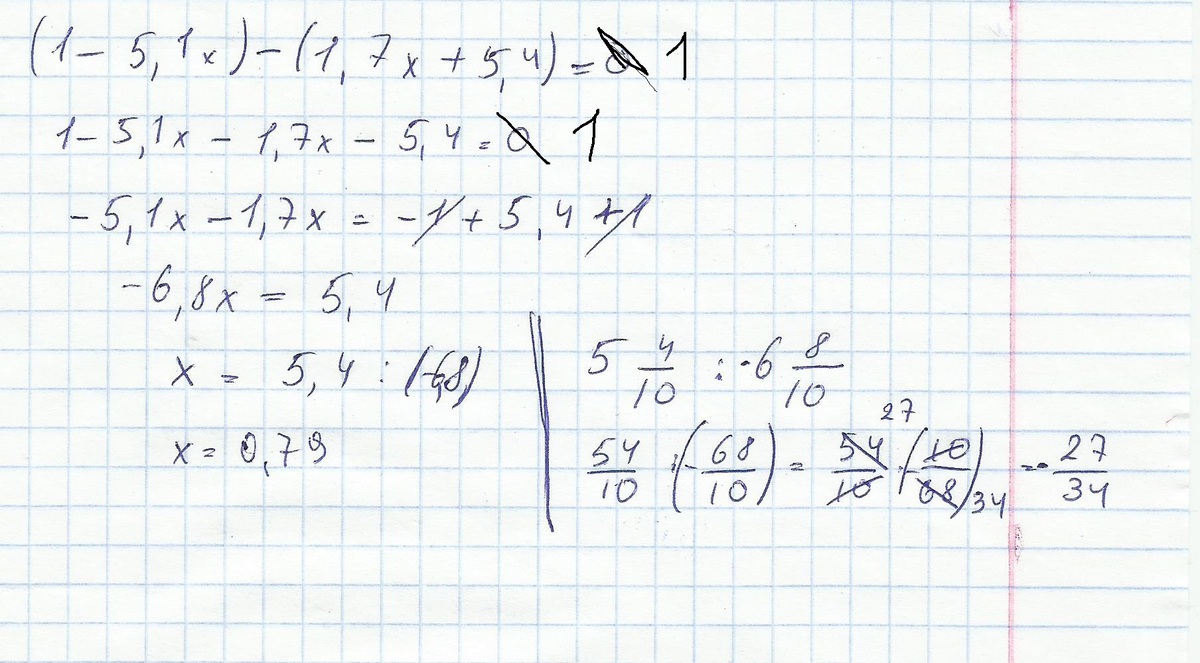 (1 - 5,1x) - (1,7x + 5,4) = 1
1 - 5,1x - 1,7x - 5,4 = 0 1
-5,1x - 1,7x = -1 + 5,4 + 1
-6,8x = 5,4
x = 5,4 : (-6,8)
x = 0,79
5 4/10 : -6 8/10
54/10 : (-68/10) = 54/10 · (-10/68) = -27/34
27
34